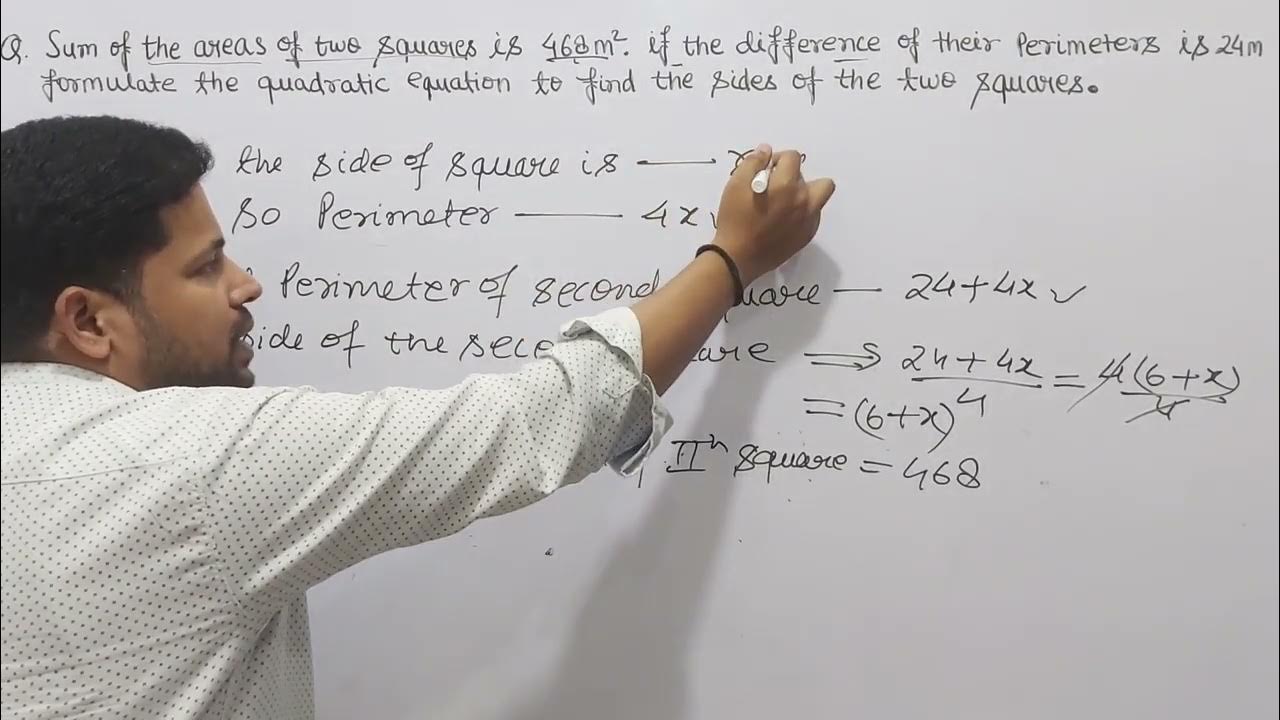 Q. Sum of the areas of two squares is 468m². if the difference of their Perimeters is 24m
formulate the quadratic equation to find the sides of the two squares.
the side of square is — x
so Perimeter — 4x
Perimeter of second square — 24+4x ✓
side of the square ⇒ 24+4x/4 = 4(6+x)/4
= (6+x)
IIⁿ square = 468